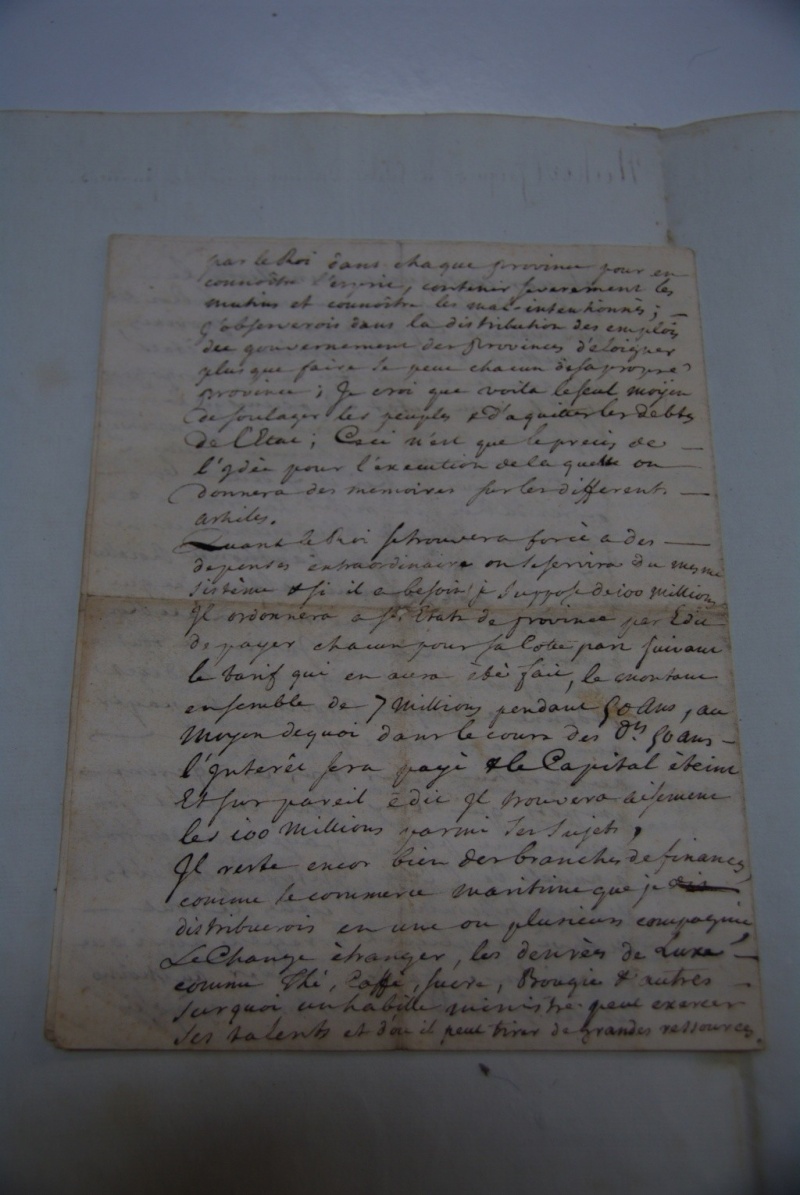 par le Roi dans chaque province pour en
connoître l'esprit, contenir severement les
mutins et connoître les mal-intentionnés; —
j'observerois dans la distribution des emplois
du gouvernement des Provinces d'eloigner
plus que faire se peut chacun de sa propre
province; Je croi que voila le seul moÿen
de soulager les peuples & d'aquitter les debtes
de l'Etat; Ceci n'est que le precis de —
l'Idée pour l'execution de la quelle on —
donnera des memoires sur les differents —
articles.
Quant le Roi se trouvera forcé a des —
depenses extraordinaire on se servira du mesme
sistème & si il a besoin je suppose de 100 millions
Il ordonnera a ses Etats de province par Edit
de payer chacun pour sa Cotte part suivant
le tarif qui en aura été fait, le montant
ensemble de 7 Millions pendant 50 ans, au
moyen dequoi dans le cours des dts 50 ans —
l'Interêt sera payé & le Capital éteint
Et sur pareil édit Il trouvera aisement
les 100 Millions parmi ses sujets,
Il reste encor bien des branches de finances,
comme le commerce maritime que je
distribuerois en une ou plusieurs compagnie
Le Change étranger, les denrées de Luxe —
comme Thé, Caffé, sucre, Bougie & autres —
sur quoi un habille ministre peut exercer
ses talents et d'ou il peut tirer de grandes ressources.